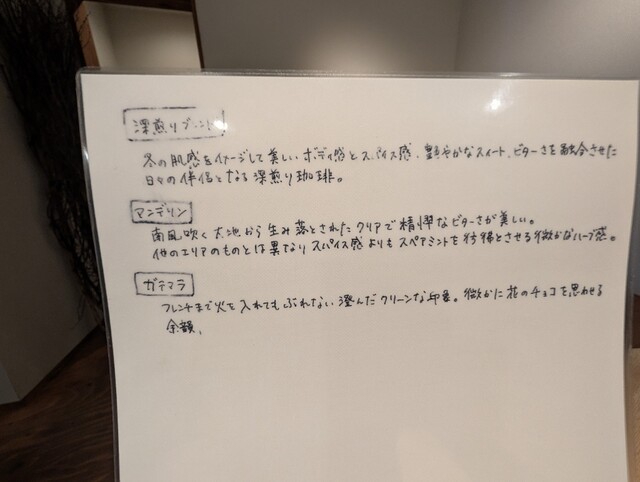 深煎りブレンド
冬の肌感をイメージして美しいボディ感とスパイス感、艶やかなスイート、ビターさを融合させた
日々の伴侶となる深煎り珈琲。
マンデリン
南風吹く大地から生み落とされたクリアで精悍なビターさが美しい。
他のエリアのものとは異なりスパイス感よりもスペアミントを彷彿とさせる微かなハーブ感。
ガテマラ
フレンチまで火を入れてもぶれない澄んだクリーンな印象。微かに花のチョコを思わせる
余韻。